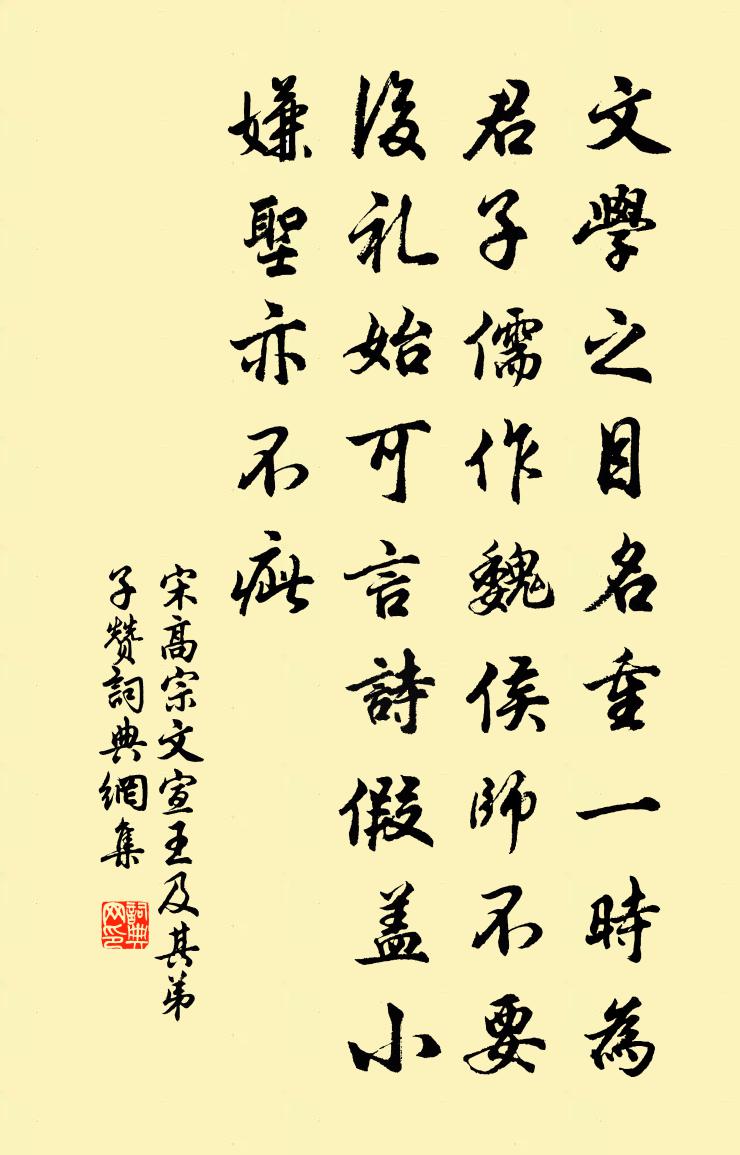 文學之目名重一時為
君子儒作魏侯師不要
後礼始可言詩假盖小
嫌聖亦不疵
宋高宗文宣王及其弟
子赞詞典網集
詞典网印